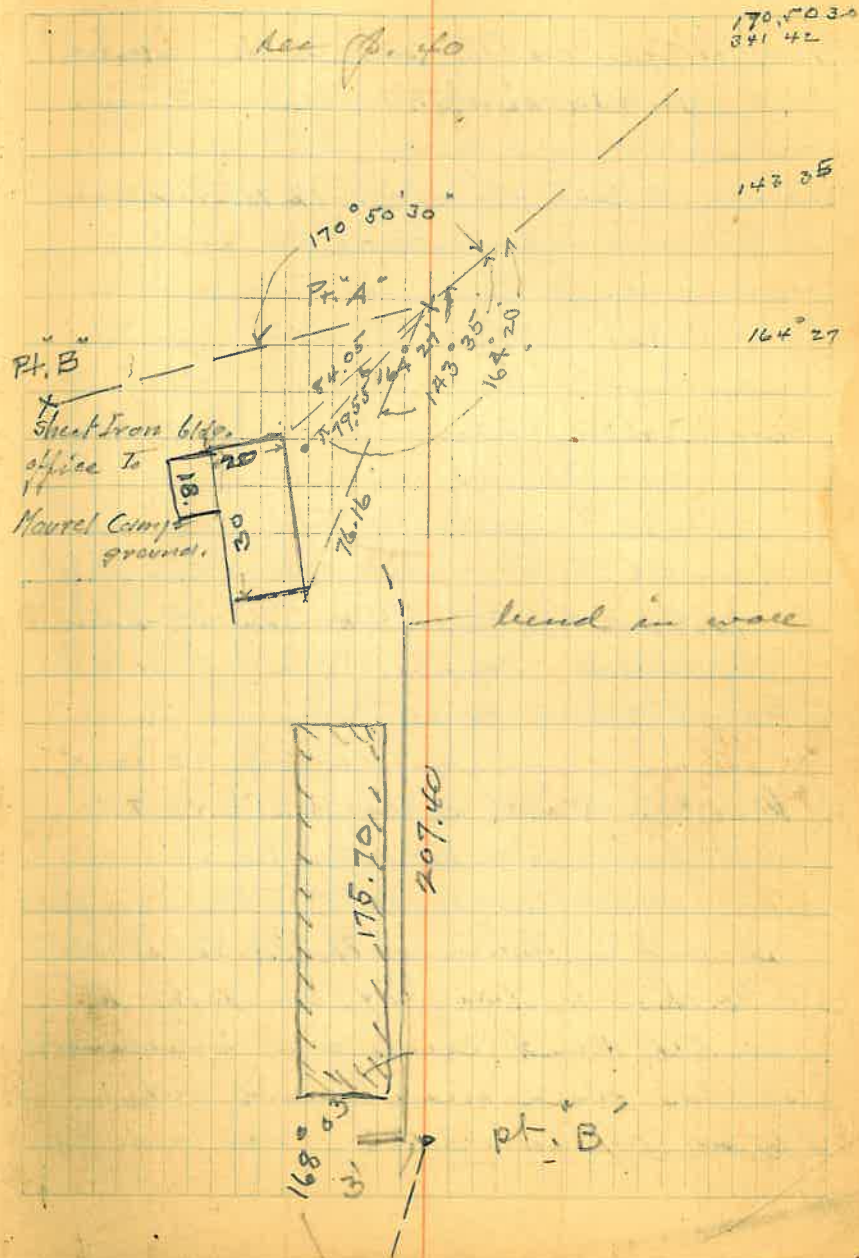 see p. 40
170.50 30
341 42
143 35
170° 50' 30"
Pt. "A"
164° 27
Pt. "B"
84.05
79.55
164° 27'
143° 35'
164° 20'
Sheet Iron bldg.
office To
Mourel Camp
ground.
20
18.
30
76.16
bend in wall
175.70
207.40
168° 03'
3'
pt. "B"